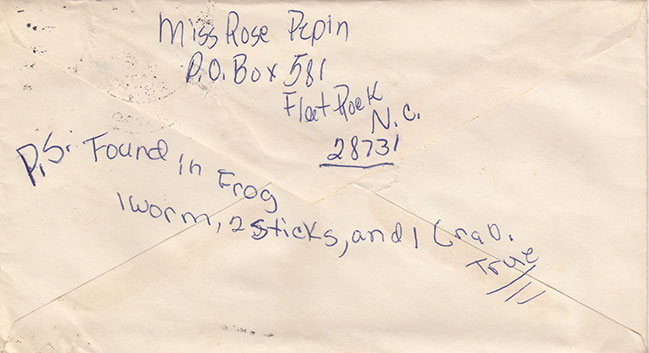 Miss Rose Pepin
P.O. Box 581
Flat Rock
N.C.
28731
P.S. Found in Frog
1 worm, 2 sticks, and 1 Crab.
True!!